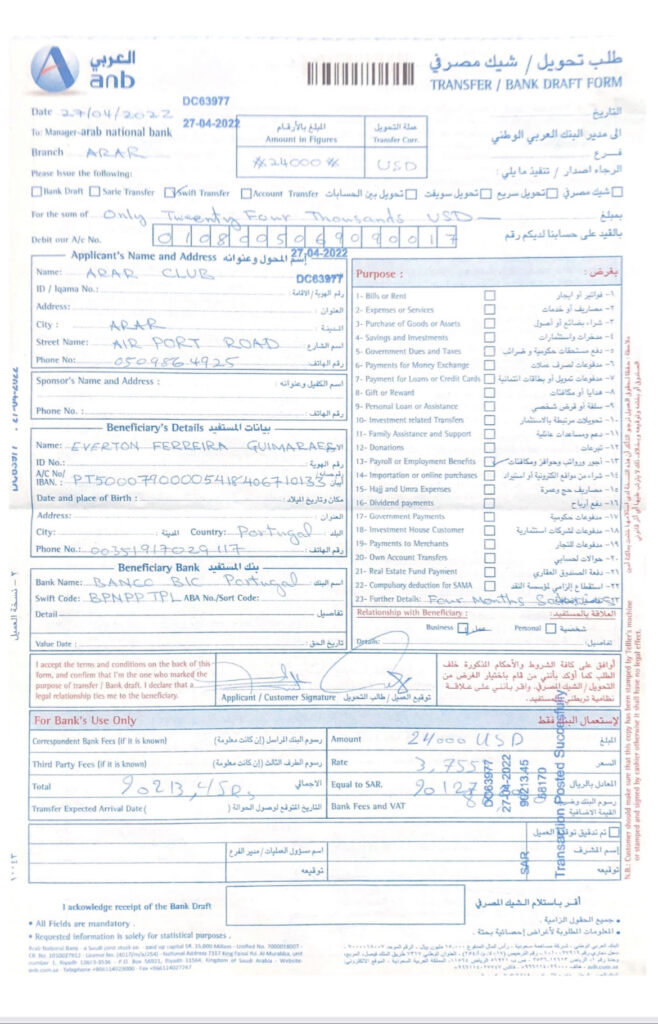 العربي
anb
طلب تحويل / شيك مصرفي
TRANSFER / BANK DRAFT FORM
DC63977
Date 27/04/2022
27-04-2022
التاريخ
To: Manager-arab national bank
الى مدير البنك العربي الوطني
Branch ARAR
فرع
المبلغ بالأرقام
Amount in Figures
عملة التحويل
Transfer Curr.
#24000#
USD
Please Issue the following:
الرجاء اصدار / تنفيذ ما يلي:
Bank Draft
Sarie Transfer
Swift Transfer
Account Transfer
تحويل بين الحسابات
تحويل سويفت
تحويل سريع
شيك مصرفي
For the sum of Only Tweenty Four Thousands USD
بمبلغ
Debit our A/c No.
بالقيد على حسابنا لديكم رقم
27-04-2022
Applicant's Name and Address
إسم المحول وعنوانه
DC63977
Name: ARAR CLUB
ID / Iqama No.:
رقم الهوية / الاقامة:
Address:
العنوان:
City: ARAR
المدينة:
Street Name: AIR PORT ROAD
اسم الشارع:
Phone No: 0509864925
رقم الهاتف:
Sponsor's Name and Address :
اسم الكفيل وعنوانه:
Phone No. :
رقم الهاتف:
Beneficiary's Details
بيانات المستفيد
Name: EVERTON FERREIRA GUIMARAES
ID No.:
رقم الهوية:
A/C No/
IBAN.: PT50007900005418406710133
Date and place of Birth :
مكان وتاريخ الميلاد:
Address:
العنوان:
City:
المدينة:
Country: Portugal
البلد:
Phone No.: 00351917029117
رقم الهاتف:
Beneficiary Bank
بنك المستفيد
Bank Name: BANCO BIC Portugal
اسم البنك:
Swift Code: BPNPPTPL
ABA No./Sort Code:
Detail
تفاصيل
Value Date :
تاريخ الحق:
Purpose :
بغرض:
1- Bills or Rent
١- فواتير أو ايجار
2- Expenses or Services
٢- مصاريف أو خدمات
3- Purchase of Goods or Assets
٣- شراء بضائع أو أصول
4- Savings and Investments
٤- مدخرات واستثمارات
5- Government Dues and Taxes
٥- دفع مستحقات حكومية و ضرائب
6- Payments for Money Exchange
٦- مدفوعات لصرف عملات
7- Payment for Loans or Credit Cards
٧- مدفوعات تمويل أو بطاقات ائتمانية
8- Gift or Reward
٨- هدايا أو مكافئات
9- Personal Loan or Assistance
٩- سلفة أو قرض شخصي
10- Investment related Transfers
١٠- تحويلات مرتبطة بالاستثمار
11- Family Assistance and Support
١١- دعم ومساعدات عائلية
12- Donations
١٢- تبرعات
13- Payroll or Employment Benefits
١٣- أجور ورواتب وحوافز ومكافئات
14- Importation or online purchases
١٤- شراء من مواقع الكترونية أو استيراد
15- Hajj and Umra Expenses
١٥- مصاريف حج وعمرة
16- Dividend payments
١٦- دفع أرباح
17- Government Payments
١٧- مدفوعات حكومية
18- Investment House Customer
١٨- مدفوعات لشركات استثمارية
19- Payments to Merchants
١٩- مدفوعات للتجار
20- Own Account Transfers
٢٠- حوالات لحسابي
21- Real Estate Fund Payment
٢١- دفعة الصندوق العقاري
22- Compulsory deduction for SAMA
٢٢- استقطاع إلزامي لمؤسسة النقد
23- Further Details: Four Months
Relationship with Beneficiary :
العلاقة بالمستفيد:
Business
عمل
Personal
شخصية
Details:
تفاصيل:
I accept the terms and conditions on the back of this
form, and confirm that I'm the one who marked the
purpose of transfer / Bank draft. I declare that a
legal relationship ties me to the beneficiary.
Applicant / Customer Signature
توقيع العميل / طالب التحويل
أوافق على كافة الشروط والأحكام المذكورة خلف
الطلب كما أؤكد بأنني من قام باختيار الغرض من
التحويل / الشيك المصرفي. واقر بأنني على علاقة
نظامية تربطني بالمستفيد.
For Bank's Use Only
لإستعمال البنك فقط
Correspondent Bank Fees (if it is known)
رسوم البنك المراسل (إن كانت معلومة)
Amount 24000 USD
المبلغ
Third Party Fees (if it is known)
رسوم الطرف الثالث (إن كانت معلومة)
Rate 3,755
السعر
Total 90213,45
الاجمالي
Equal to SAR. 90127
المعادل بالريال
Transfer Expected Arrival Date(
التاريخ المتوقع لوصول الحوالة (
Bank Fees and VAT
رسوم البنك
القيمة الاضافية
DC63977
27-04-2022
90213.45
68170
SAR
Transaction Posted Successfully
اسم مسؤول العمليات / مدير الفرع
توقيعه
تم تدقيق توقيع العميل
إسم المشرف
توقيعه
I acknowledge receipt of the Bank Draft
أقر باستلام الشيك المصرفي
• All Fields are mandatory .
• جميع الحقول الزامية.
• Requested information is solely for statistical purposes .
• المعلومات المطلوبة لأغراض إحصائية بحتة.
N.B.: Customer should make sure that this copy has been stamped by Teller's machine
or stamped and signed by cashier otherwise it shall have no legal effect.
٢ - نسخة العميل